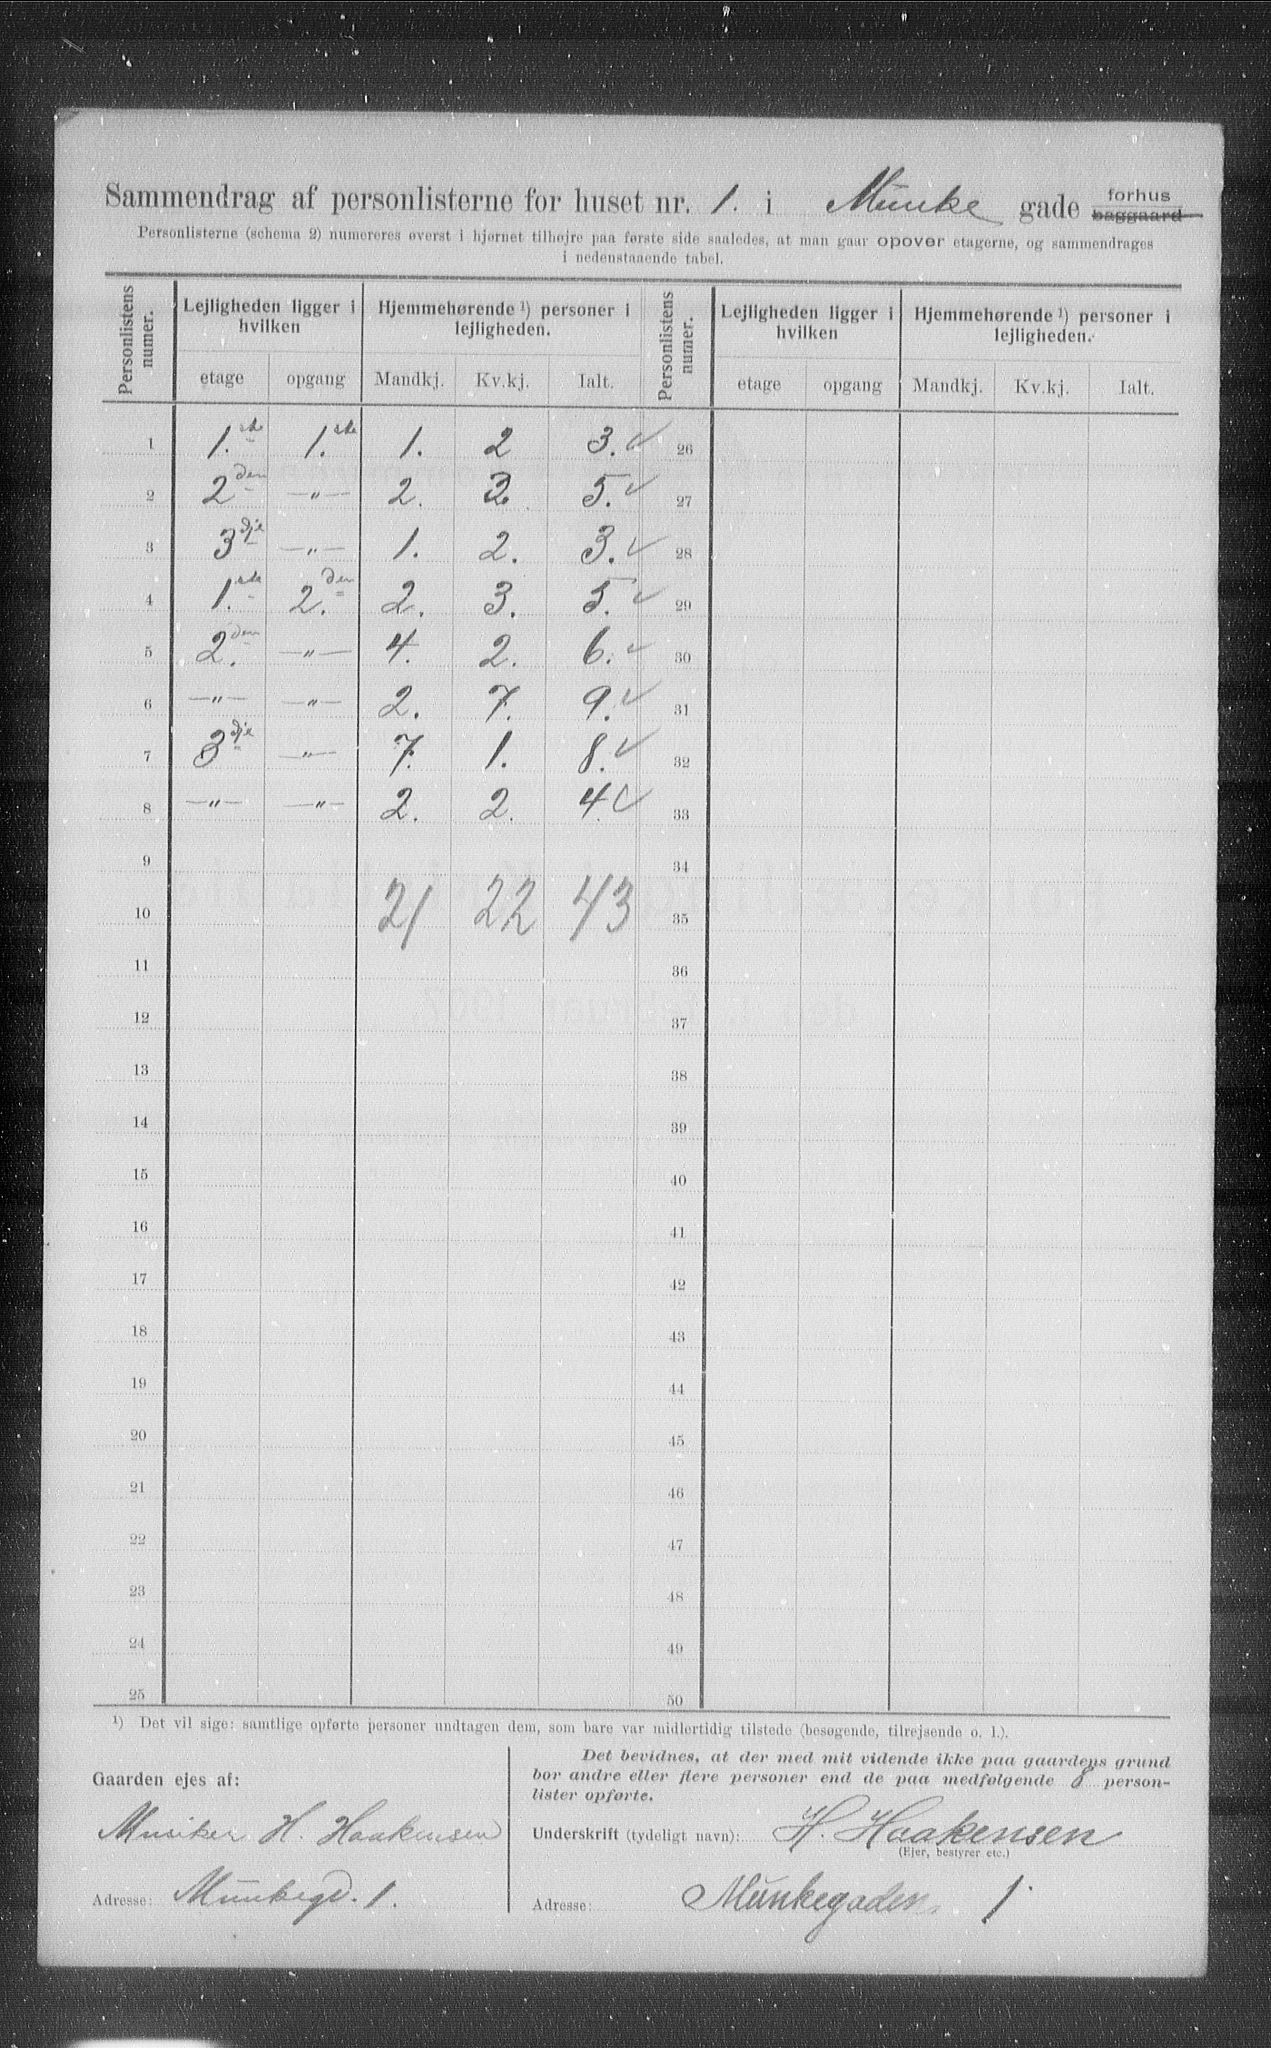 Sammendrag af personlisterne for huset nr. 1. i Munke gade forhus baggaard
Personlisterne (schema 2) numereres øverst i hjørnet tilhøjre paa første side saaledes, at man gaar opover etagerne, og sammendrages
i nedenstaaende tabel.
Personlistens numer. Lejligheden ligger i hvilken Hjemmehørende ¹) personer i lejligheden. Personlistens numer. Lejligheden ligger i hvilken Hjemmehørende ¹) personer i lejligheden.
etage opgang Mandkj. Kv.kj. Ialt. etage opgang Mandkj. Kv.kj. Ialt.
1 1.ste 1.ste 1. 2 3. ✓ 26
2 2den —"— 2. 3. 5. ✓ 27
3 3dje —"— 1. 2. 3. ✓ 28
4 1.ste 2.den 2. 3. 5. ✓ 29
5 2.den —"— 4. 2. 6. ✓ 30
6 —"— —"— 2. 7. 9. ✓ 31
7 3dje —"— 7. 1. 8. ✓ 32
8 —"— —"— 2. 2. 4. ✓ 33
9 34
10 21 22 43 35
11 36
12 37
13 38
14 39
15 40
16 41
17 42
18 43
19 44
20 45
21 46
22 47
23 48
24 49
25 50
¹) Det vil sige: samtlige opførte personer undtagen dem, som bare var midlertidig tilstede (besøgende, tilrejsende o. l.).
Gaarden ejes af:
Musiker H. Haakensen
Adresse: Munkegd. 1.
Det bevidnes, at der med mit vidende ikke paa gaardens grund
bor andre eller flere personer end de paa medfølgende 8 person-
lister opførte.
Underskrift (tydeligt navn): H. Haakensen
(Ejer, bestyrer etc.)
Adresse: Munkegaden 1